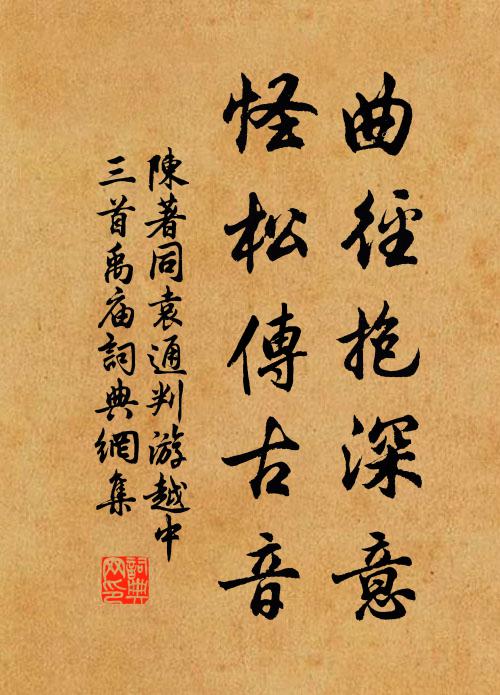 曲徑抱深意
怪松傳古音
陳著同袁通判游越中
三首禹庙詞典網集
詞典
网印